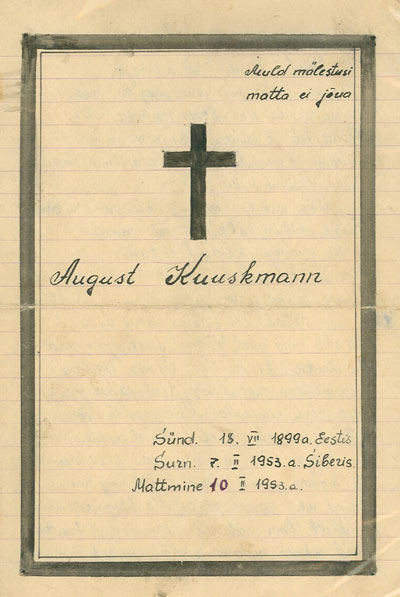 Muld mälestusi
matta ei jõua
August Kuuskmann
Sünd. 18. VII 1899a. Eestis
Surn. 7. II 1953.a. Siberis
Mattmine 10 II 1953.a.